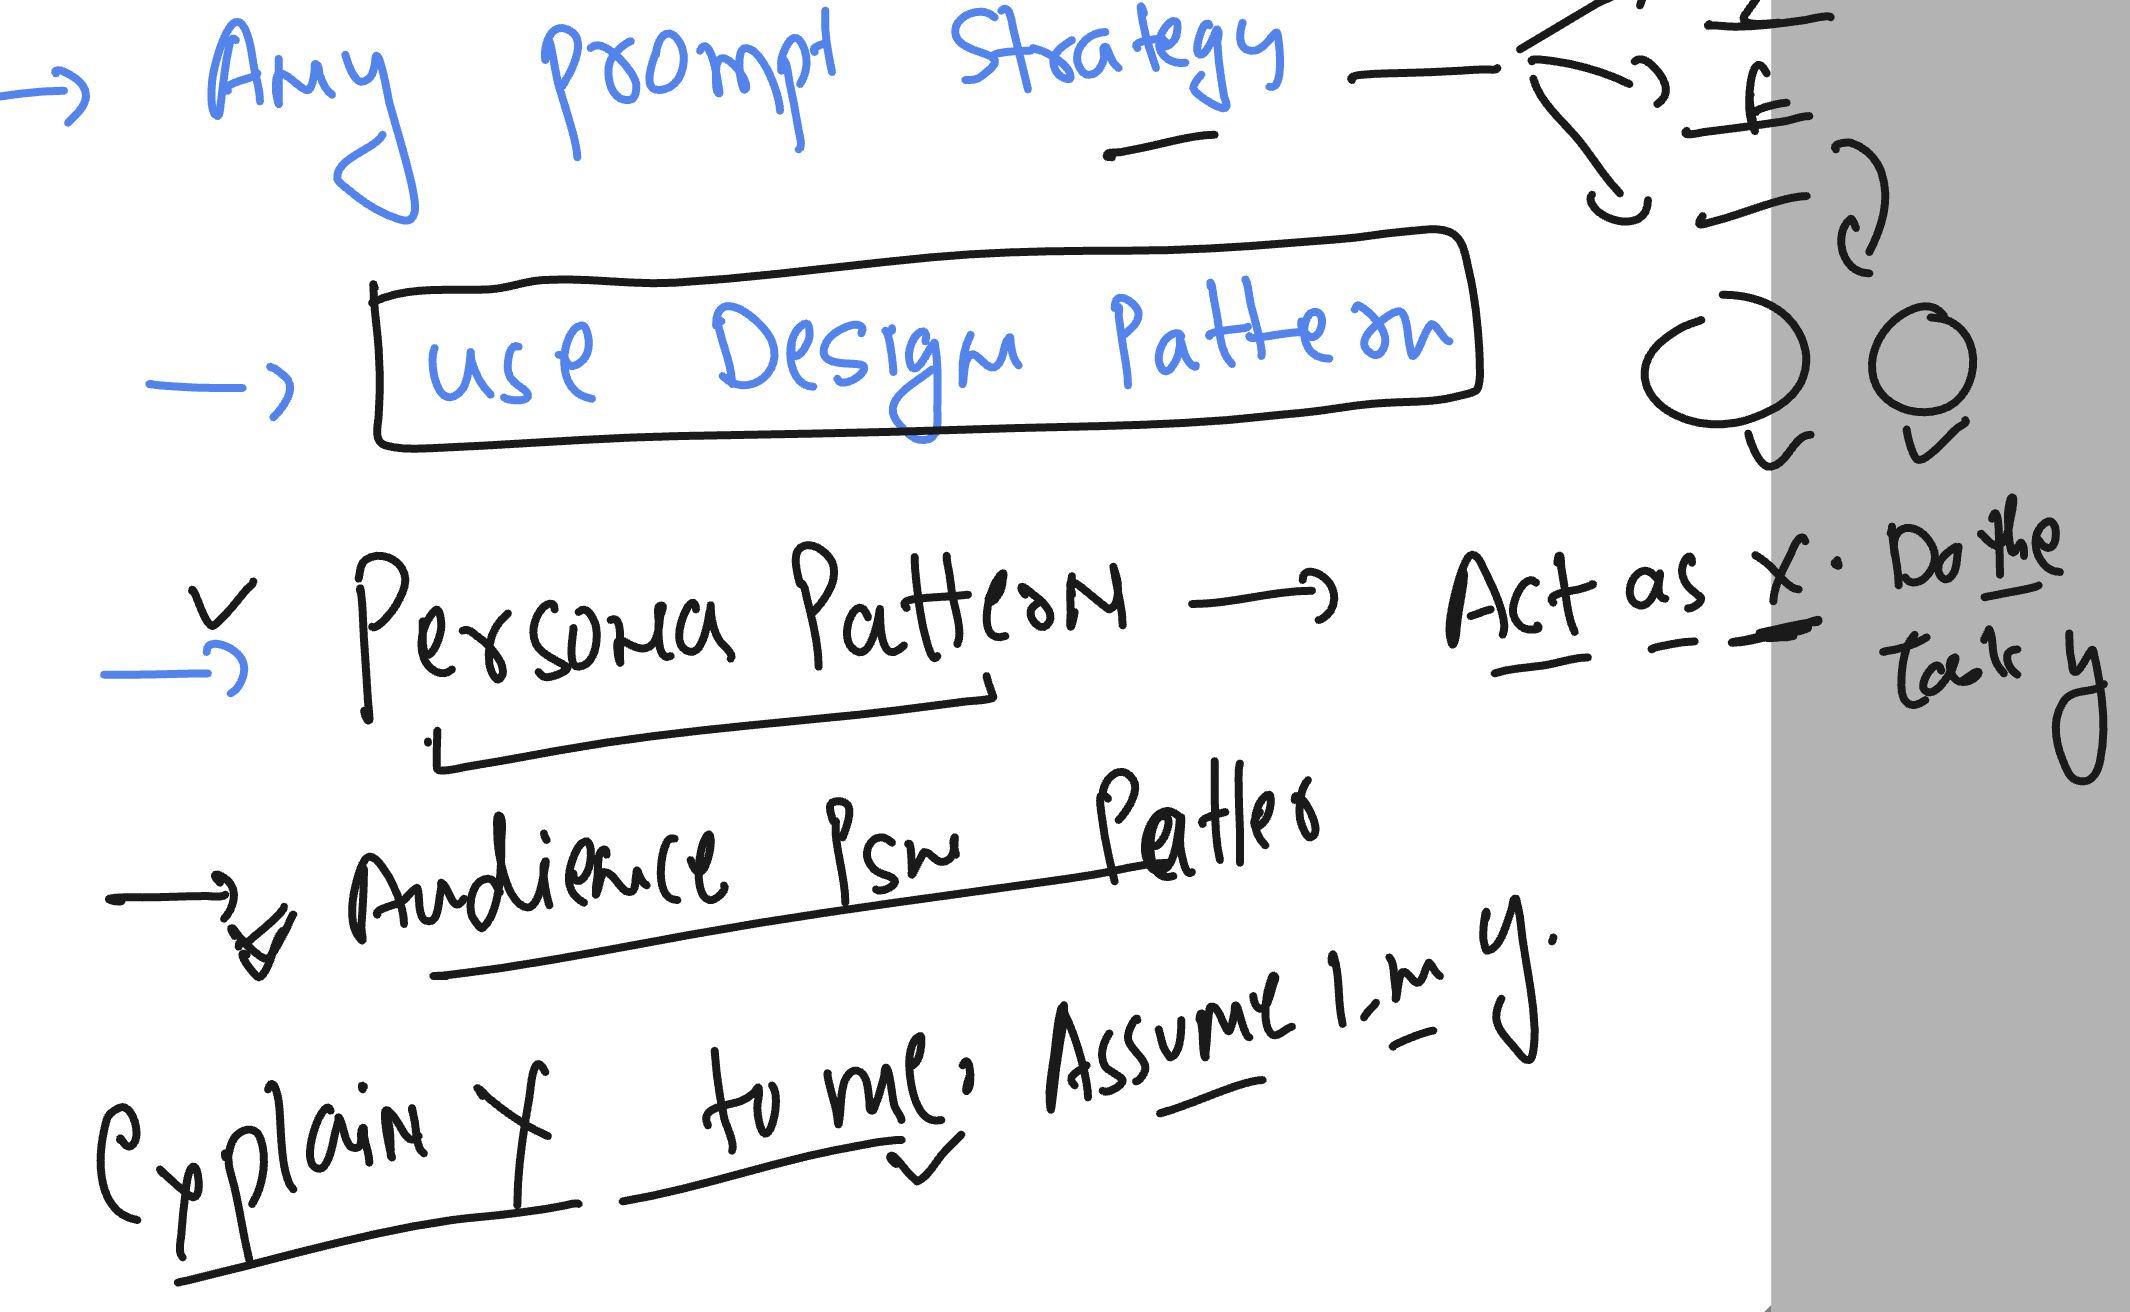 Any prompt strategy
I
f
use Design Pattern
Persona Pattern → Act as X. Do the
Task y
Audience Psn Patter
Explain X to me. Assume I.m y.